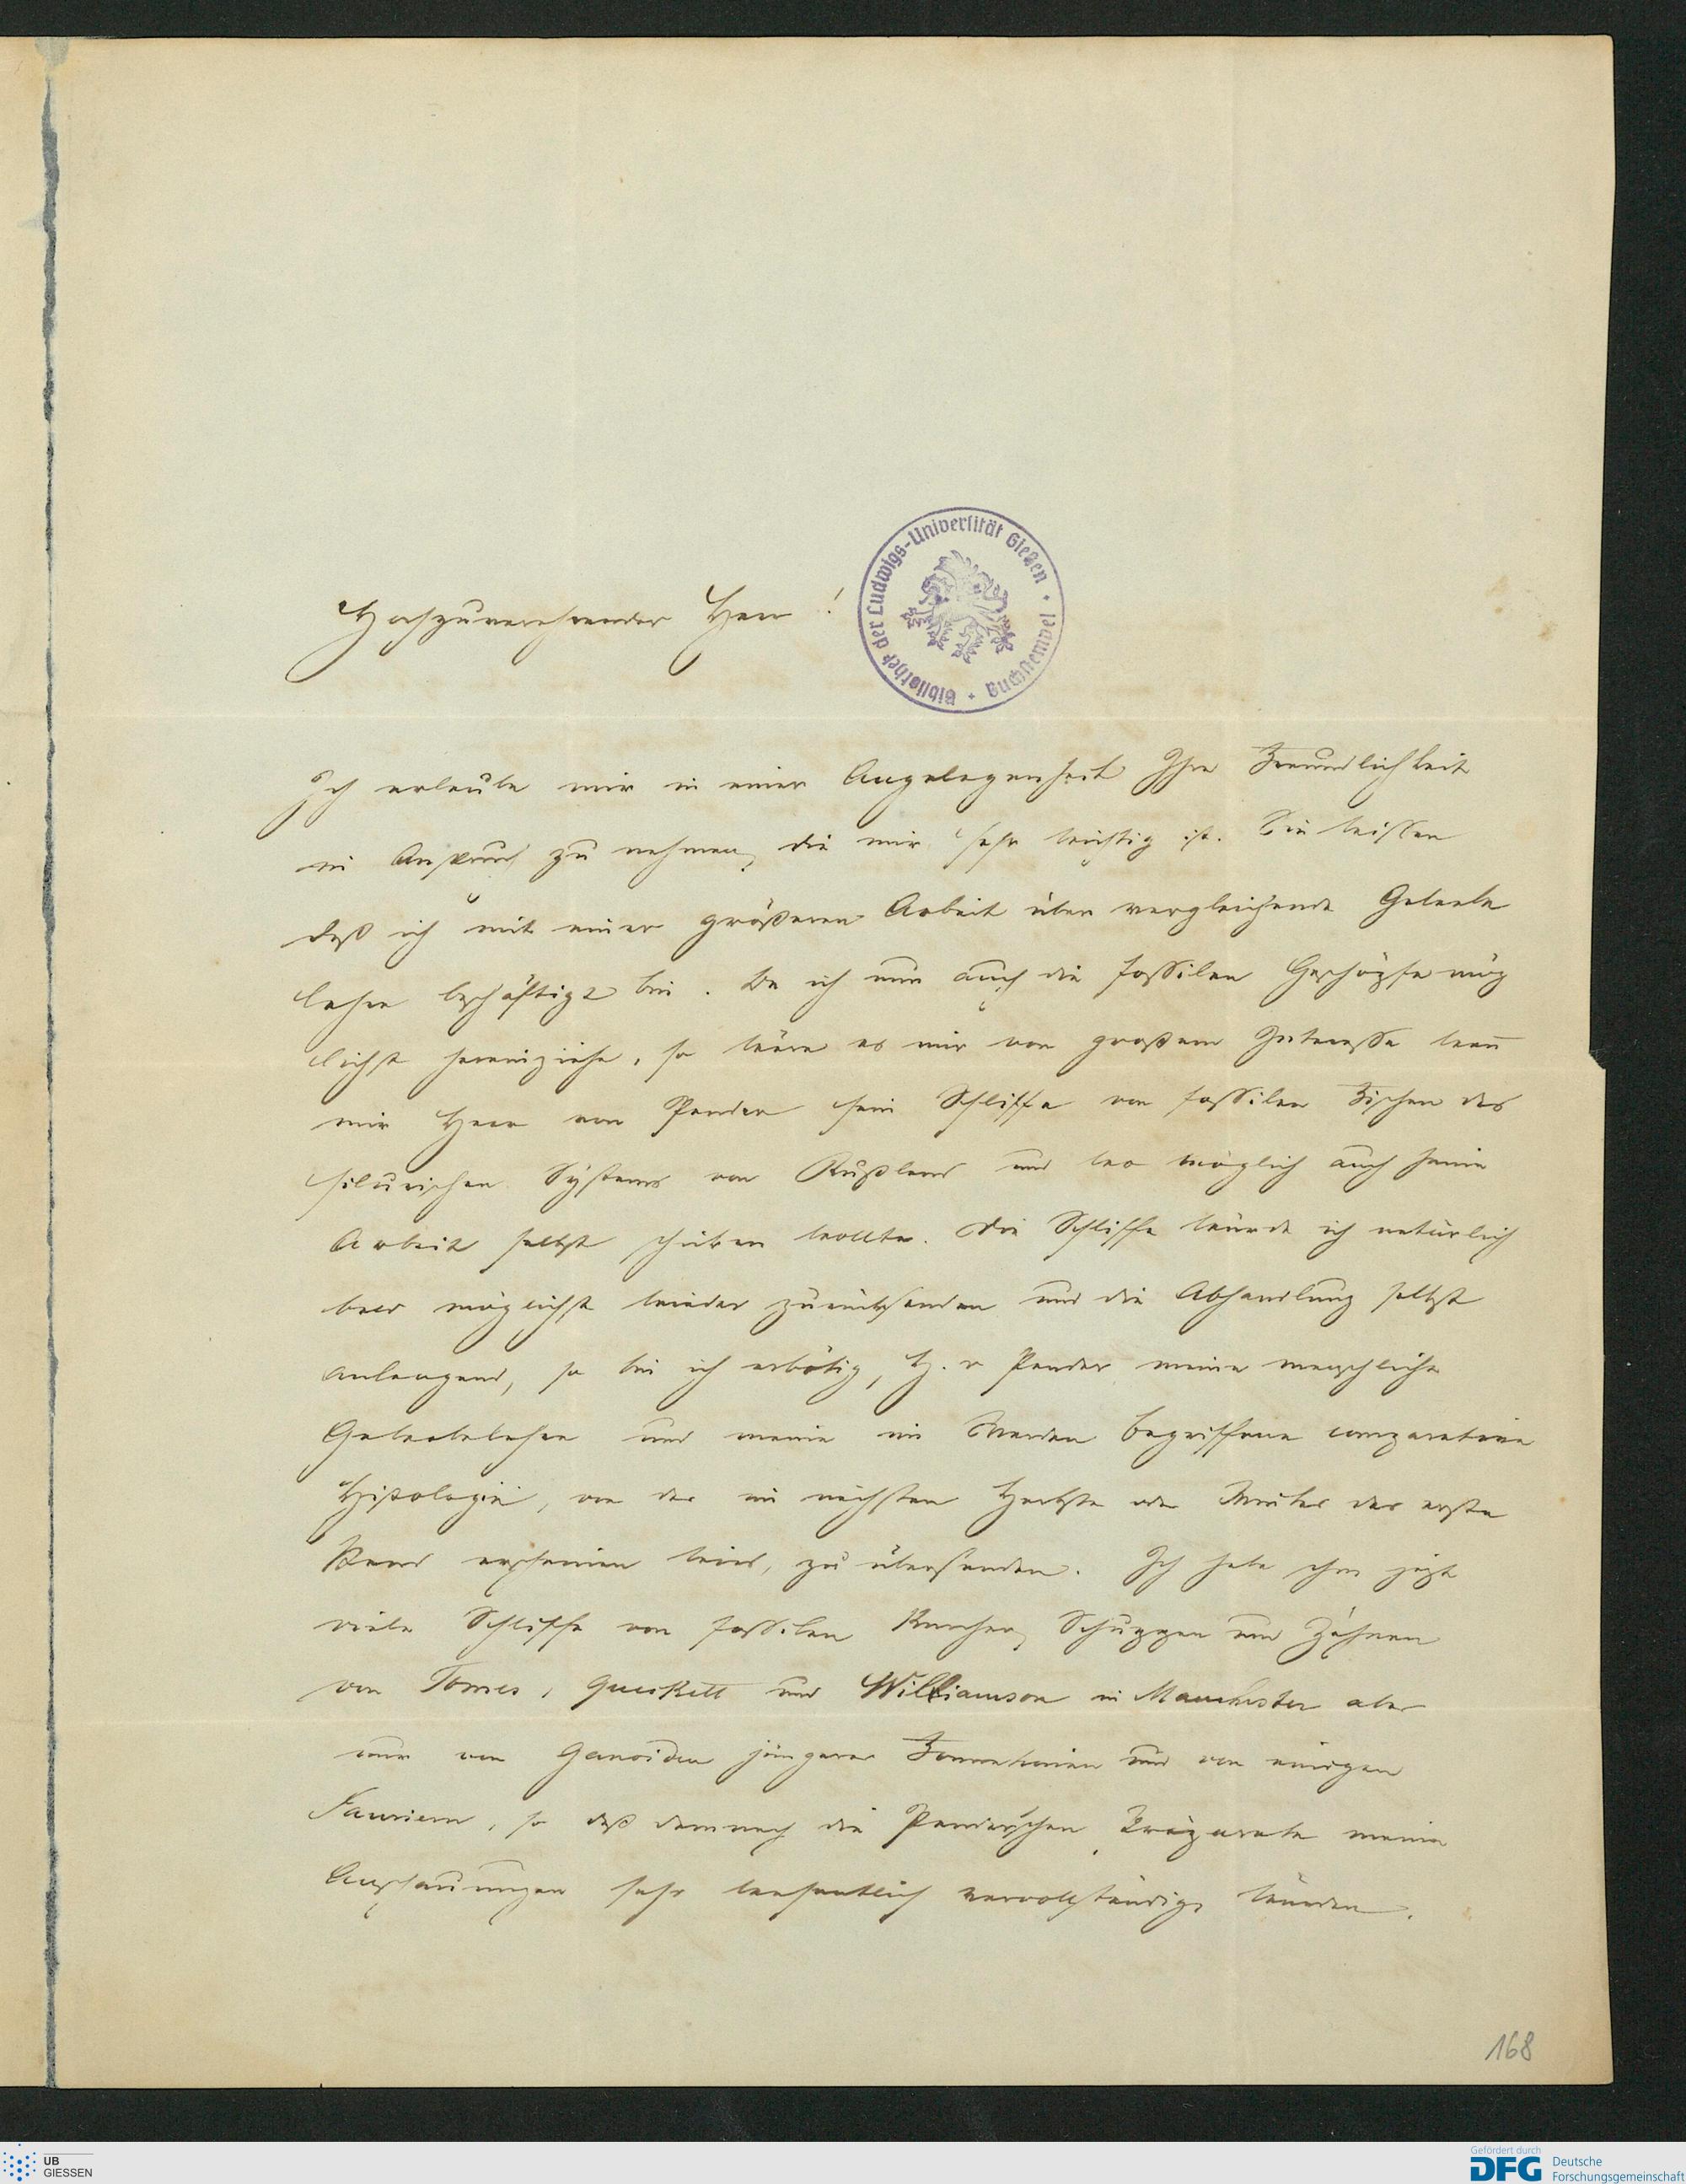 Hochzuverehrender Herr!
Bibliothek der Ludwigs-Universität Gießen · Buchstempel ·
Ich erlaube mir in einer Angelegenheit Ihre Freundlichkeit
in Anspruch zu nehmen, die mir sehr wichtig ist. Sie wissen
daß ich mit einer größeren Arbeit über vergleichende Gewebe
lehre beschäftigt bin. Da ich nun auch die fossilen Geschöpfe mög
lichst hereinziehe, so wäre es mir von großem Interesse wenn
mir Herr von Pander sein Schliffe von fossilen Fischen des
silurischen Systems von Rußland und wo möglich auch seine
Arbeit selbst schicken wollte. Die Schliffe würde ich natürlich
bald möglichst wieder zurücksenden und die Abhandlung selbst
anlangend, so bin ich erbötig, H. v Pander meine menschliche
Gewebelehre und meine im Werden begriffene comparative
Histologie, von der im nächsten Herbste oder Winter der erste
Band erscheinen wird, zu übersenden. Ich habe schon jezt
viele Schliffe von fossilen Knochen, Schuppen und Zähnen
von Tomes, Queckett und Williamson in Manchester aber
nur von Ganoiden jüngerer Formationen und von einigen
Sauriern, so daß demnach die Pander'schen Präparate meine
Anschauungen sehr wesentlich vervollständigen würden.
168
UB
GIESSEN
Gefördert durch
DFG Deutsche
Forschungsgemeinschaft